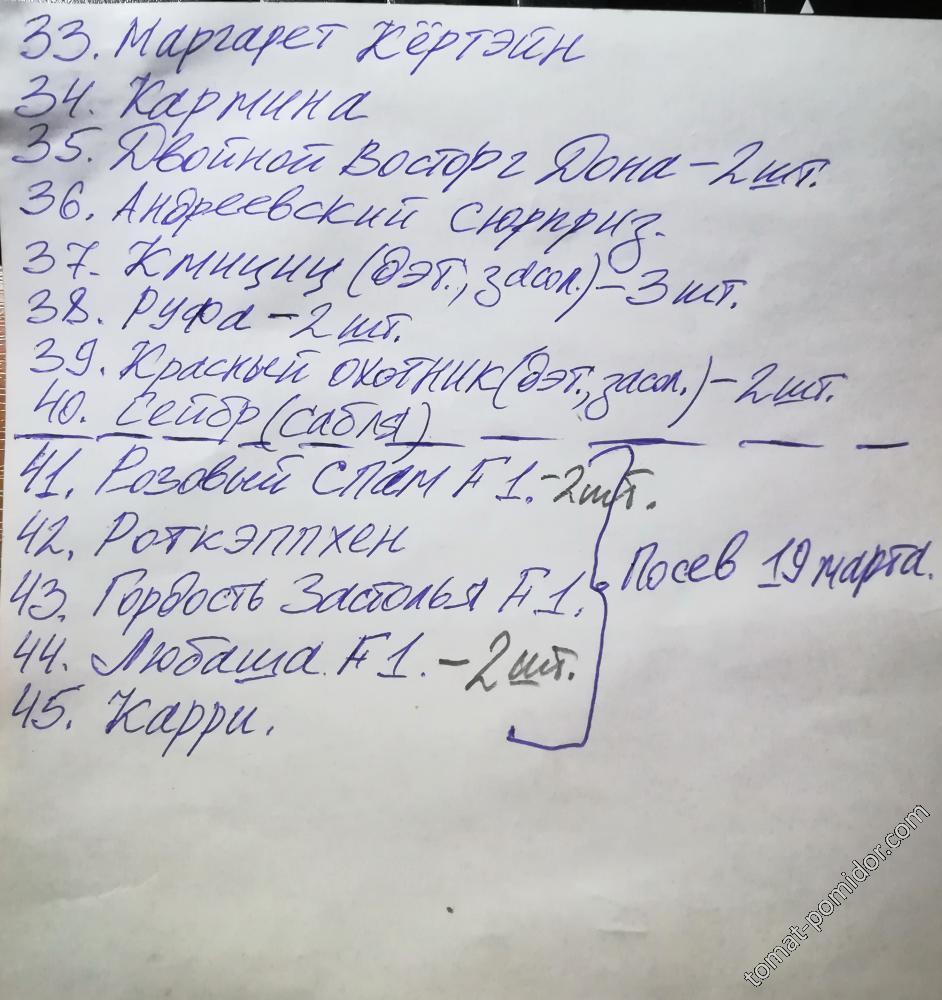 33. Маргарет Кёртэйн
34. Кармина
35. Двойной Восторг Дона - 2 шт.
36. Андреевский сюрприз.
37. Кмициц (дэт., засол.) - 3 шт.
38. Руфа - 2 шт.
39. Красный охотник (дэт., засол.) - 2 шт.
40. Сейбр (сабля)
41. Розовый Спам F1. - 2 шт.
42. Роткэппхен
43. Гордость Застолья F1.
Посев 19 марта.
44. Любаша F1. - 2 шт.
45. Карри.
tomat-pomidor.com